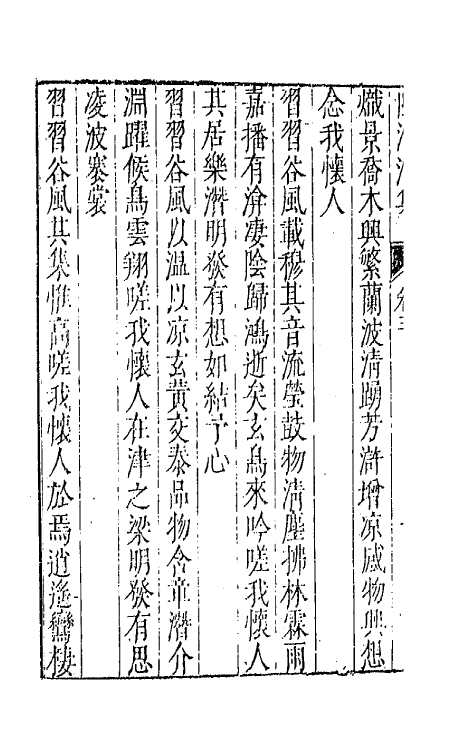 熾景喬木興繁蘭波清踴芳滸增凉感物興想
念我懷人
習習谷風載穆其音流瑩鼓物清塵拂林霖雨
嘉播有渰凄陰歸鴻逝矣玄鳥來吟嗟我懷人
其居樂潛明發有想如結予心
習習谷風以温以凉玄黄交泰品物含章潛介
淵躍候鳥雲翔嗟我懷人在津之梁明發有思
凌波褰裳
習習谷風其集惟高嗟我懷人於焉逍遥鸞棲